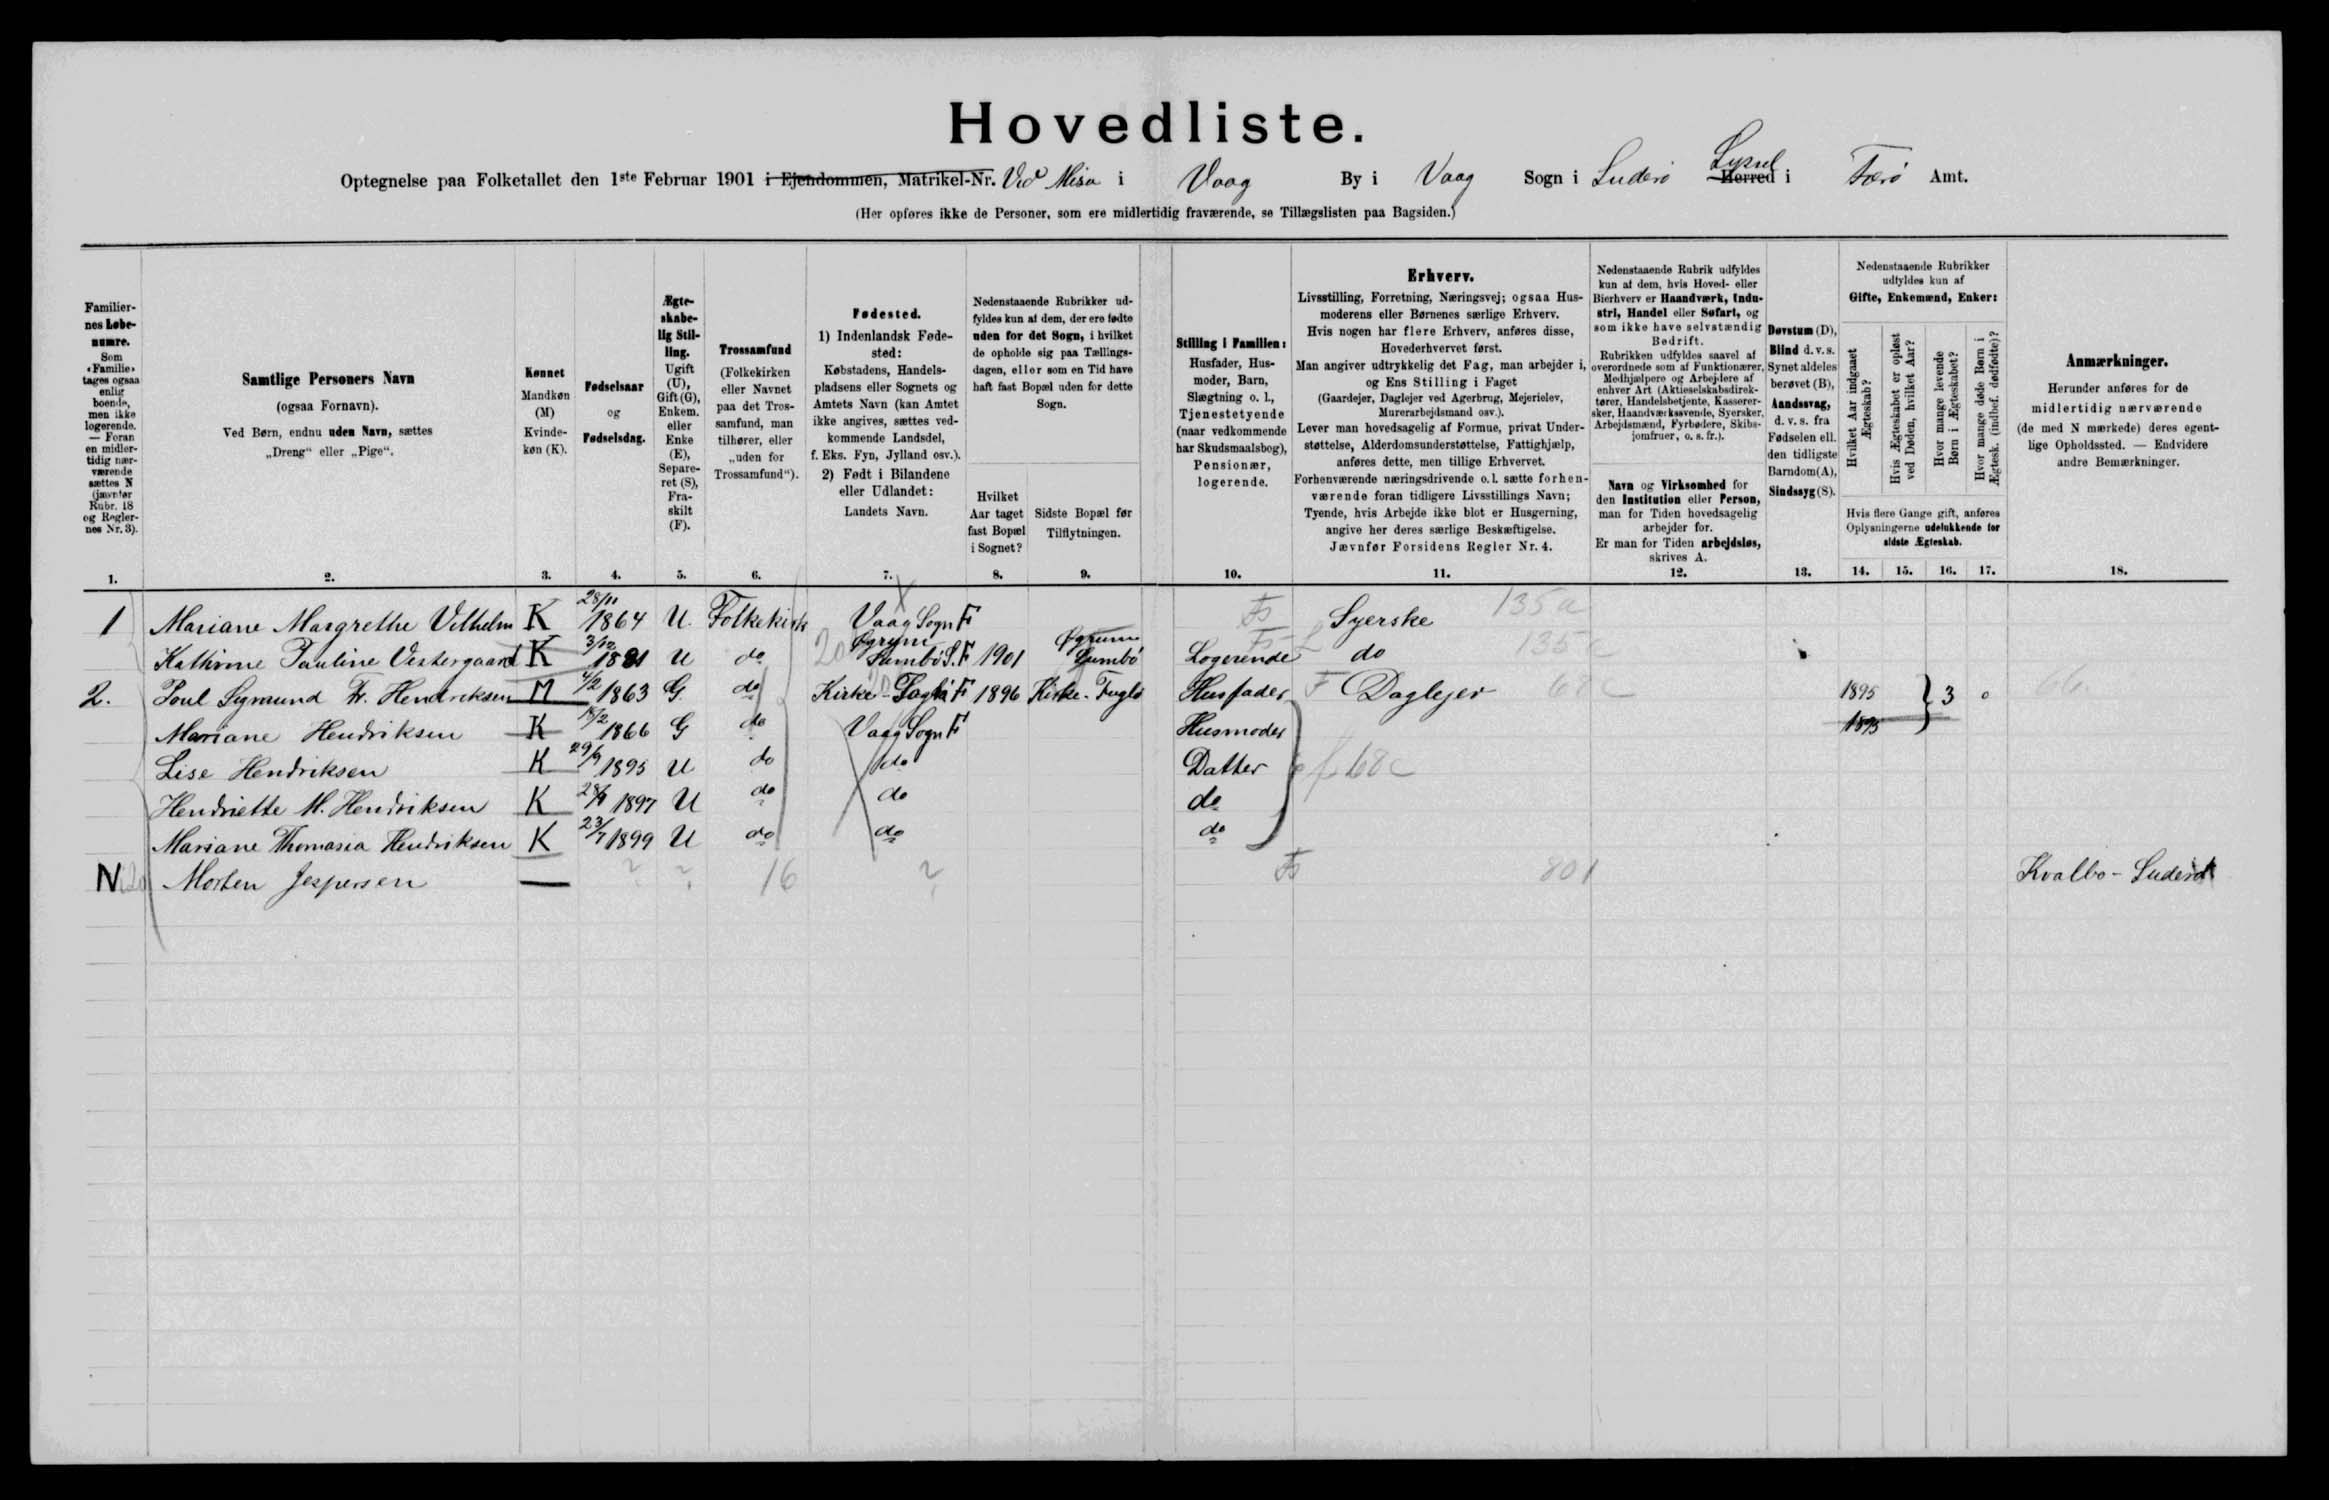 Hovedliste.
Optegnelse paa Folketallet den 1ste Februar 1901 i Ejendommen, Matrikel-Nr. Ved Misa i Vaag By i Vaag Sogn i Suderø Syssel Herred i Færø Amt.
(Her opføres ikke de Personer, som ere midlertidig fraværende, se Tillægslisten paa Bagsiden.)
Familiernes Løbenumre. Som «Familie» tages ogsaa enlig boende, men ikke logerende. — Foran en midlertidig nærværende sættes N (jævnfør Rubr. 18 og Reglernes Nr. 3).
Samtlige Personers Navn
(ogsaa Fornavn).
Ved Børn, endnu uden Navn, sættes
„Dreng“ eller „Pige“.
Kønnet
Mandkøn (M)
Kvindekøn (K).
Fødselsaar
og
Fødselsdag.
Ægteskabelig Stilling.
Ugift (U), Gift (G), Enkem. eller Enke (E), Separeret (S), Fraskilt (F).
Trossamfund
(Folkekirken eller Navnet paa det Trossamfund, man tilhører, eller „uden for Trossamfund“).
Fødested.
1) Indenlandsk Fødested:
Købstadens, Handelspladsens eller Sognets og Amtets Navn (kan Amtet ikke angives, sættes vedkommende Landsdel, f. Eks. Fyn, Jylland osv.).
2) Født i Bilandene eller Udlandet:
Landets Navn.
Nedenstaaende Rubrikker udfyldes kun af dem, der ere fødte uden for det Sogn, i hvilket de opholde sig paa Tællingsdagen, eller som en Tid have haft fast Bopæl uden for dette Sogn.
Hvilket Aar taget fast Bopæl i Sognet?
Sidste Bopæl før Tilflytningen.
Stilling i Familien:
Husfader, Husmoder, Barn, Slægtning o. l., Tjenestetyende (naar vedkommende har Skudsmaalsbog), Pensionær, logerende.
Erhverv.
Livsstilling, Forretning, Næringsvej; ogsaa Husmoderens eller Børnenes særlige Erhverv.
Hvis nogen har flere Erhverv, anføres disse, Hovederhvervet først.
Man angiver udtrykkelig det Fag, man arbejder i, og Ens Stilling i Faget
(Gaardejer, Daglejer ved Agerbrug, Mejerielev, Murerarbejdsmand osv.).
Lever man hovedsagelig af Formue, privat Understøttelse, Alderdomsunderstøttelse, Fattighjælp, anføres dette, men tillige Erhvervet.
Forhenværende næringsdrivende o. l. sætte forhenværende foran tidligere Livsstillings Navn;
Tyende, hvis Arbejde ikke blot er Husgerning, angive her deres særlige Beskæftigelse.
Jævnfør Forsidens Regler Nr. 4.
Nedenstaaende Rubrik udfyldes kun af dem, hvis Hoved- eller Bierhverv er Haandværk, Industri, Handel eller Søfart, og som ikke have selvstændig Bedrift.
Rubrikken udfyldes saavel af overordnede som af Funktionærer, Medhjælpere og Arbejdere af enhver Art (Aktieselskabsdirektører, Handelsbetjente, Kasserersker, Haandværkssvende, Syersker, Arbejdsmænd, Fyrbødere, Skibsjomfruer, o. s. fr.).
Navn og Virksomhed for den Institution eller Person, man for Tiden hovedsagelig arbejder for.
Er man for Tiden arbejdsløs, skrives A.
Døvstum (D), Blind d. v. s. Synet aldeles berøvet (B), Aandssvag, d. v. s. fra Fødselen ell. den tidligste Barndom (A), Sindssyg (S).
Nedenstaaende Rubrikker udfyldes kun af
Gifte, Enkemænd, Enker:
Hvilket Aar indgaaet Ægteskab?
Hvis Ægteskabet er opløst ved Døden, hvilket Aar?
Hvor mange levende Børn i Ægteskabet?
Hvor mange døde Børn i Ægtesk. (indbef. dødfødte)?
Hvis flere Gange gift, anføres Oplysningerne udelukkende for sidste Ægteskab.
Anmærkninger.
Herunder anføres for de midlertidig nærværende (de med N mærkede) deres egentlige Opholdssted. — Endvidere andre Bemærkninger.
1. 2. 3. 4. 5. 6. 7. 8. 9. 10. 11. 12. 13. 14. 15. 16. 17. 18.
1 Mariane Margrethe Vilhelm K 28/11 1864 U. Folkekirk Vaag Sogn F Syerske 135a
Kathrine Pauline Vestergaard K 3/12 1881 U do 20 Øgrum Sumbø S. F 1901 Øgrum Sumbø Logerende do 135
2. Poul Sigmund Fr. Hendriksen M 4/2 1863 G. do Kirke-Fuglø F 1896 Kirke-Fuglø Husfader F Daglejer 68c 1895 3 0 66.
Mariane Hendriksen K /2 1866 G do Vaag Sogn F Husmoder 1895
Lise Hendriksen K 29/9 1895 U do do Datter f 68c
Hendriette M. Hendriksen K 28/ 1897 U do do do
Mariane Thomasia Hendriksen K 23/7 1899 U do do do
N Morten Jespersen — ? ? 16 ? 801 Kvalbø - Suderø